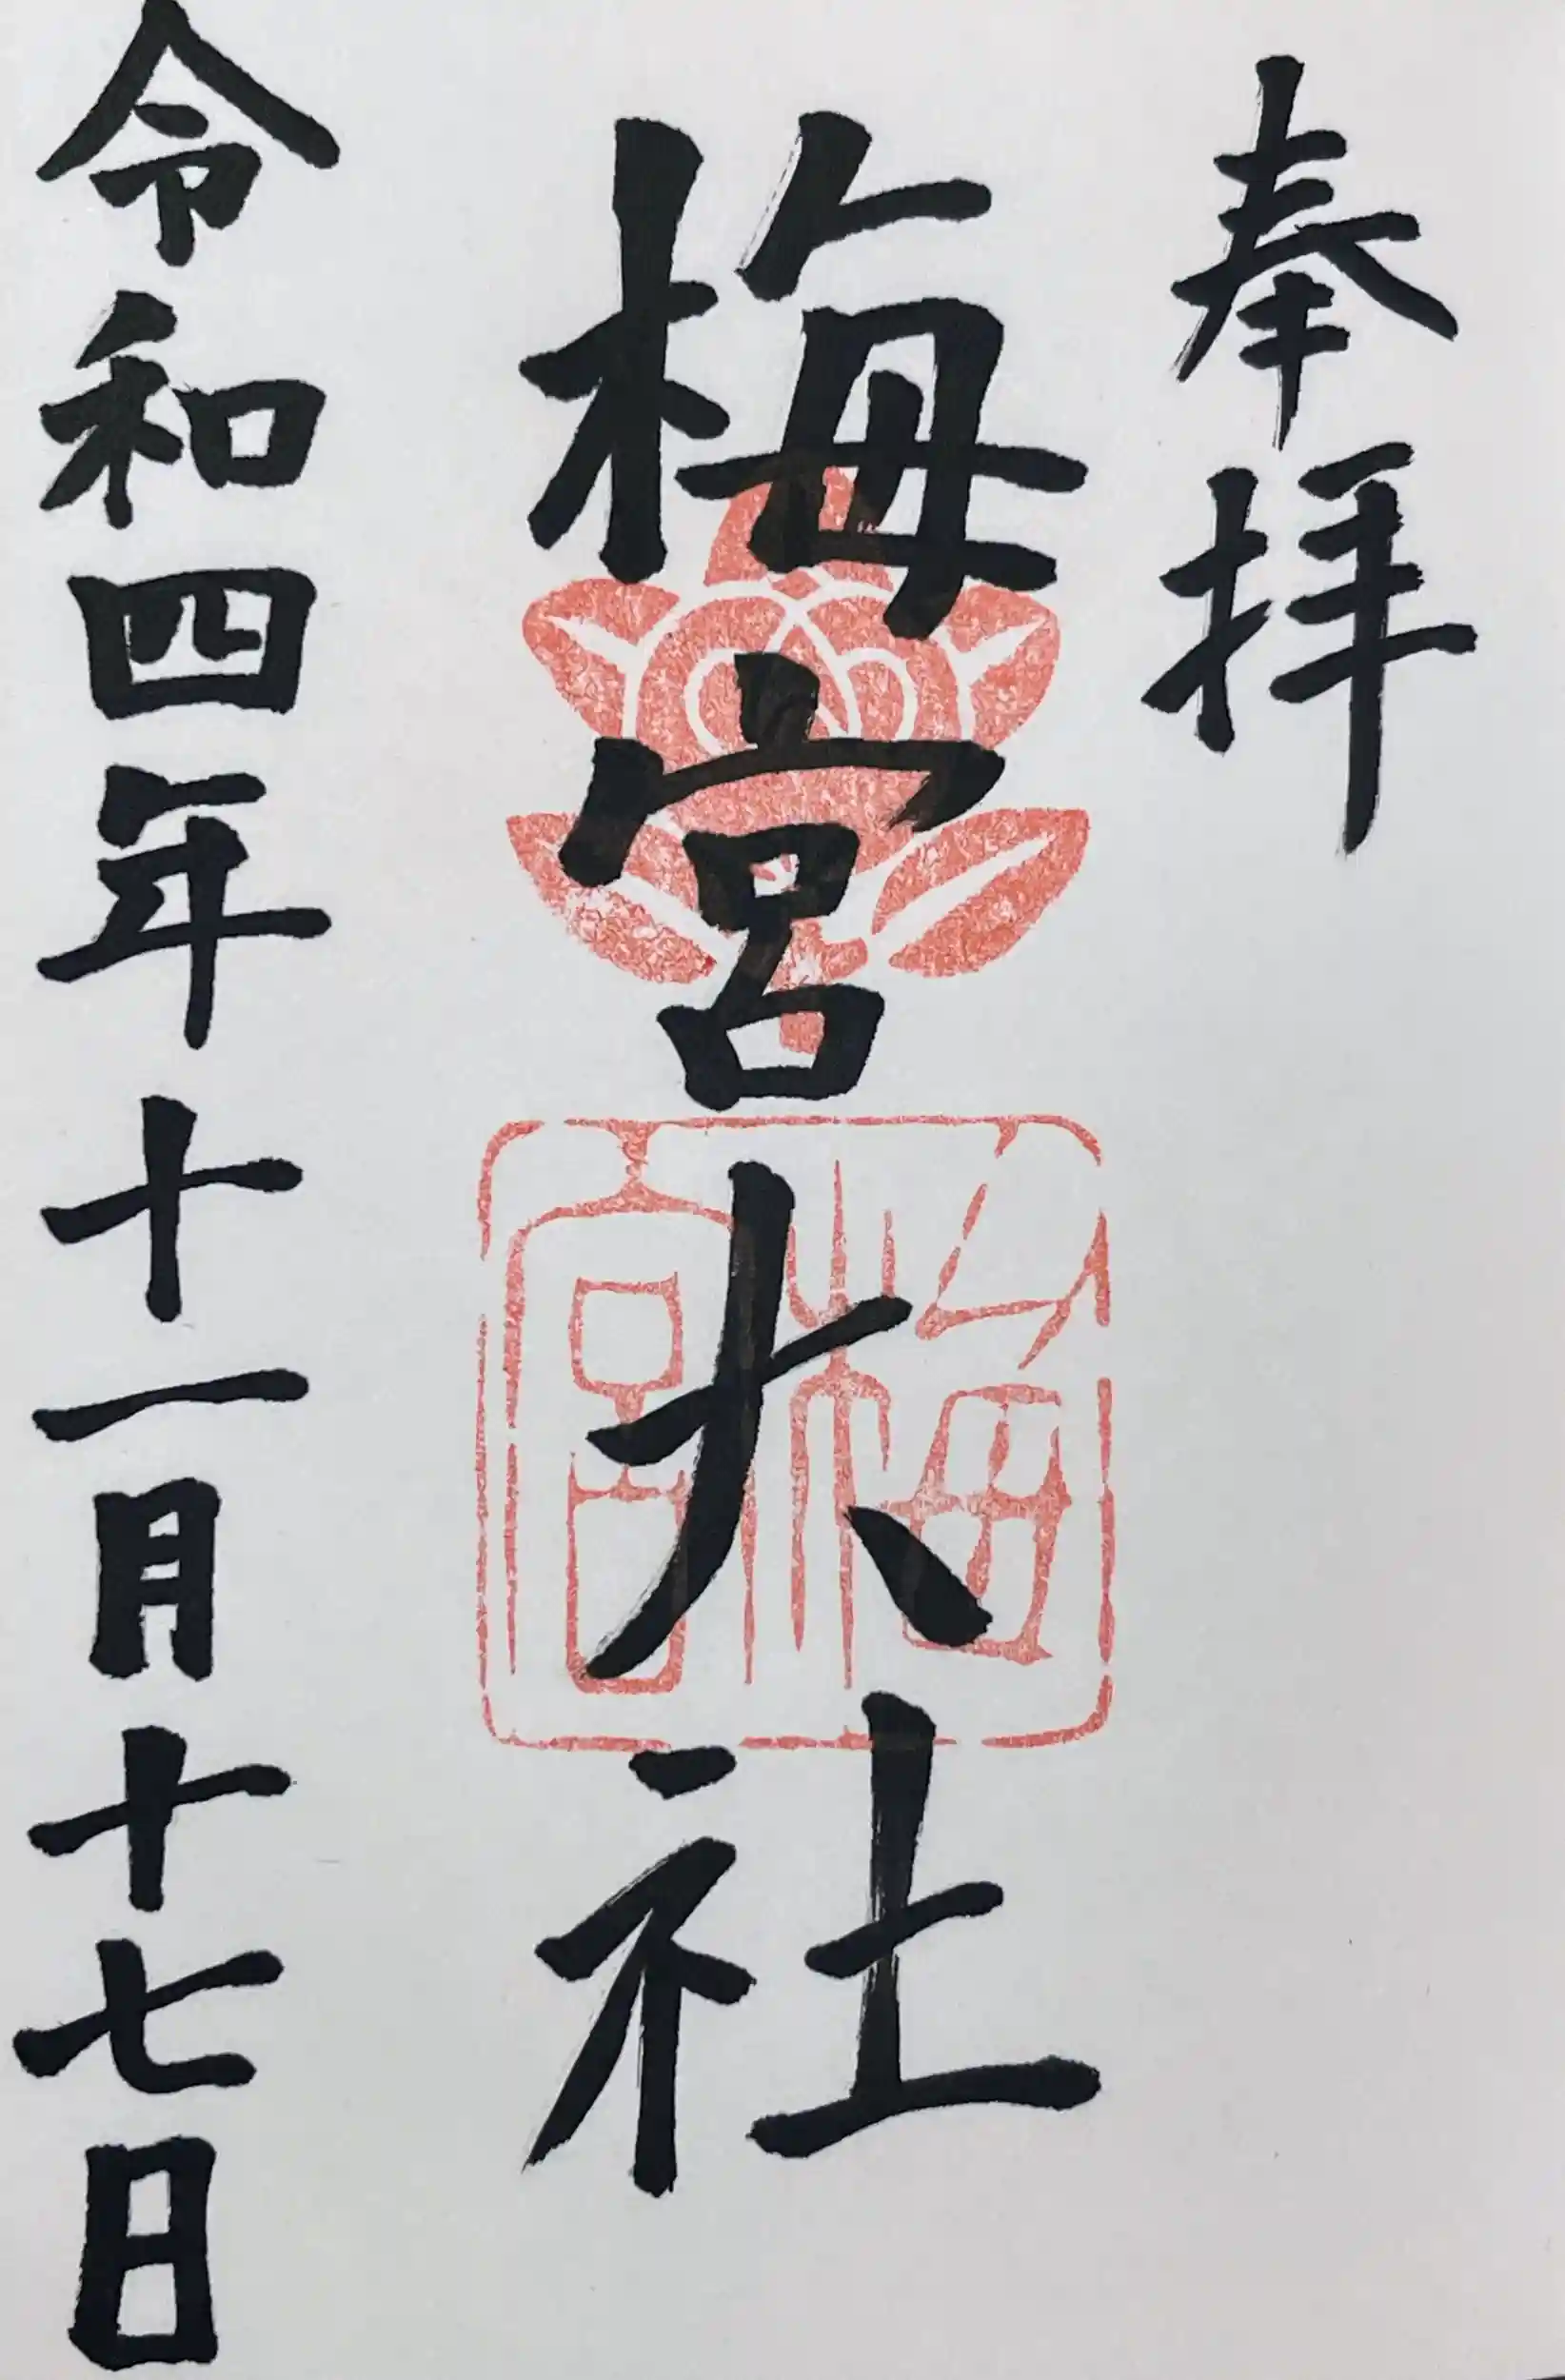 奉拝
梅宮大社
梅宮
令和四年十一月十七日